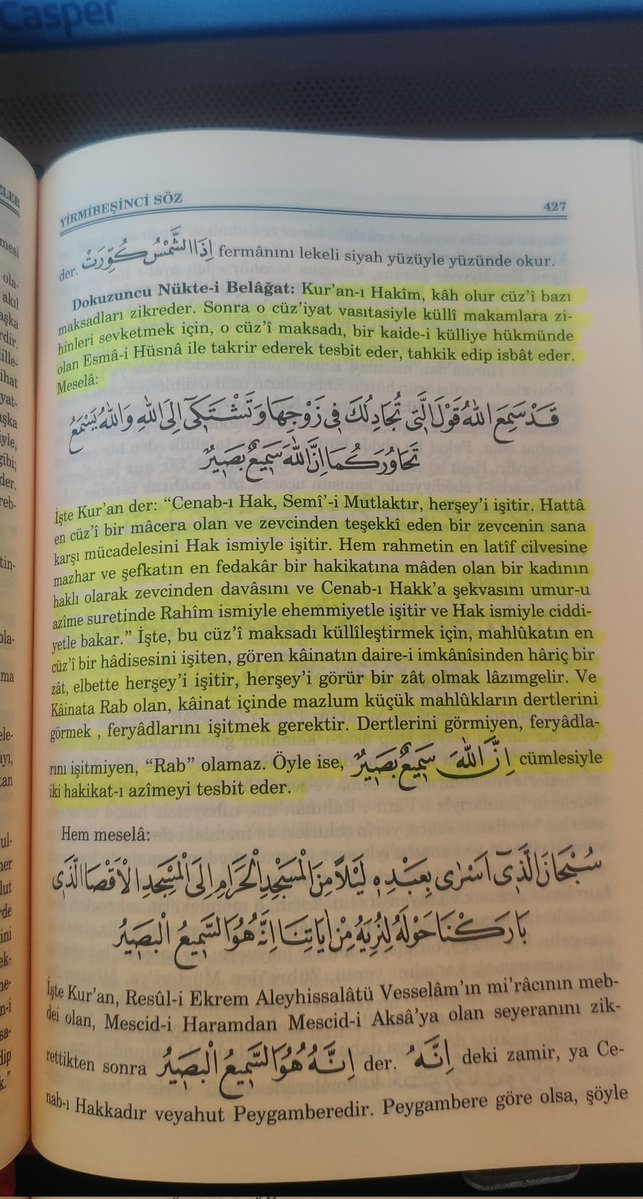 Casper
YİRMİBEŞİNCİ SÖZ 427
der. اِذَا الشَّمْسُ كُوِّرَتْ fermânını lekeli siyah yüzüyle yüzünde okur.
Dokuzuncu Nükte-i Belâğat: Kur'an-ı Hakîm, kâh olur cüz'î bazı
maksadları zikreder. Sonra o cüz'iyat vasıtasiyle küllî makamlara zi-
hinleri sevketmek için, o cüz'î maksadı, bir kaide-i külliye hükmünde
olan Esmâ-i Hüsna ile takrir ederek tesbit eder, tahkik edip isbât eder.
Meselâ:
قَدْ سَمِعَ اللّٰهُ قَوْلَ الَّتٖى تُجَادِلُكَ فٖى زَوْجِهَا وَتَشْتَكٖٓى اِلَى اللّٰهِ وَاللّٰهُ يَسْمَعُ
تَحَاوُرَكُمَا اِنَّ اللّٰهَ سَمٖيعٌ بَصٖيرٌ
İşte Kur'an der: "Cenab-ı Hak, Semî'-i Mutlaktır, herşey'i işitir. Hattâ
en cüz'î bir mâcera olan ve zevcinden teşekkî eden bir zevcenin sana
karşı mücadelesini Hak ismiyle işitir. Hem rahmetin en latîf cilvesine
mazhar ve şefkatın en fedakâr bir hakikatına mâden olan bir kadının
haklı olarak zevcinden davâsını ve Cenab-ı Hakk'a şekvasını umur-u
azîme suretinde Rahîm ismiyle ehemmiyetle işitir ve Hak ismiyle ciddi-
yetle bakar." İşte, bu cüz'î maksadı küllîleştirmek için, mahlûkatın en
cüz'î bir hâdisesini işiten, gören kâinatın daire-i imkânîsinden hâriç bir
zât, elbette herşey'i işitir, herşey'i görür bir zât olmak lâzımgelir. Ve
Kâinata Rab olan, kâinat içinde mazlum küçük mahlûkların dertlerini
görmek , feryâdlarını işitmek gerektir. Dertlerini görmiyen, feryâdla-
rını işitmiyen, "Rab" olamaz. Öyle ise, اِنَّ اللّٰهَ سَمٖيعٌ بَصٖيرٌ cümlesiyle
iki hakikat-ı azîmeyi tesbit eder.
Hem meselâ:
سُبْحَانَ الَّذٖٓى اَسْرٰى بِعَبْدِهٖ لَيْلًا مِنَ الْمَسْجِدِ الْحَرَامِ اِلَى الْمَسْجِدِ الْاَقْصَا الَّذٖى
بَارَكْنَا حَوْلَهُ لِنُرِيَهُ مِنْ اٰيَاتِنَا اِنَّهُ هُوَ السَّمٖيعُ الْبَصٖيرُ
İşte Kur'an, Resûl-i Ekrem Aleyhissalâtü Vesselâm'ın mi'râcının meb-
dei olan, Mescid-i Haramdan Mescid-i Aksâ'ya olan seyeranını zik-
rettikten sonra اِنَّهُ هُوَ السَّمٖيعُ الْبَصٖيرُ der. اِنَّهُ deki zamir, ya Ce-
nab-ı Hakkadır veyahut Peygamberedir. Peygambere göre olsa, şöyle